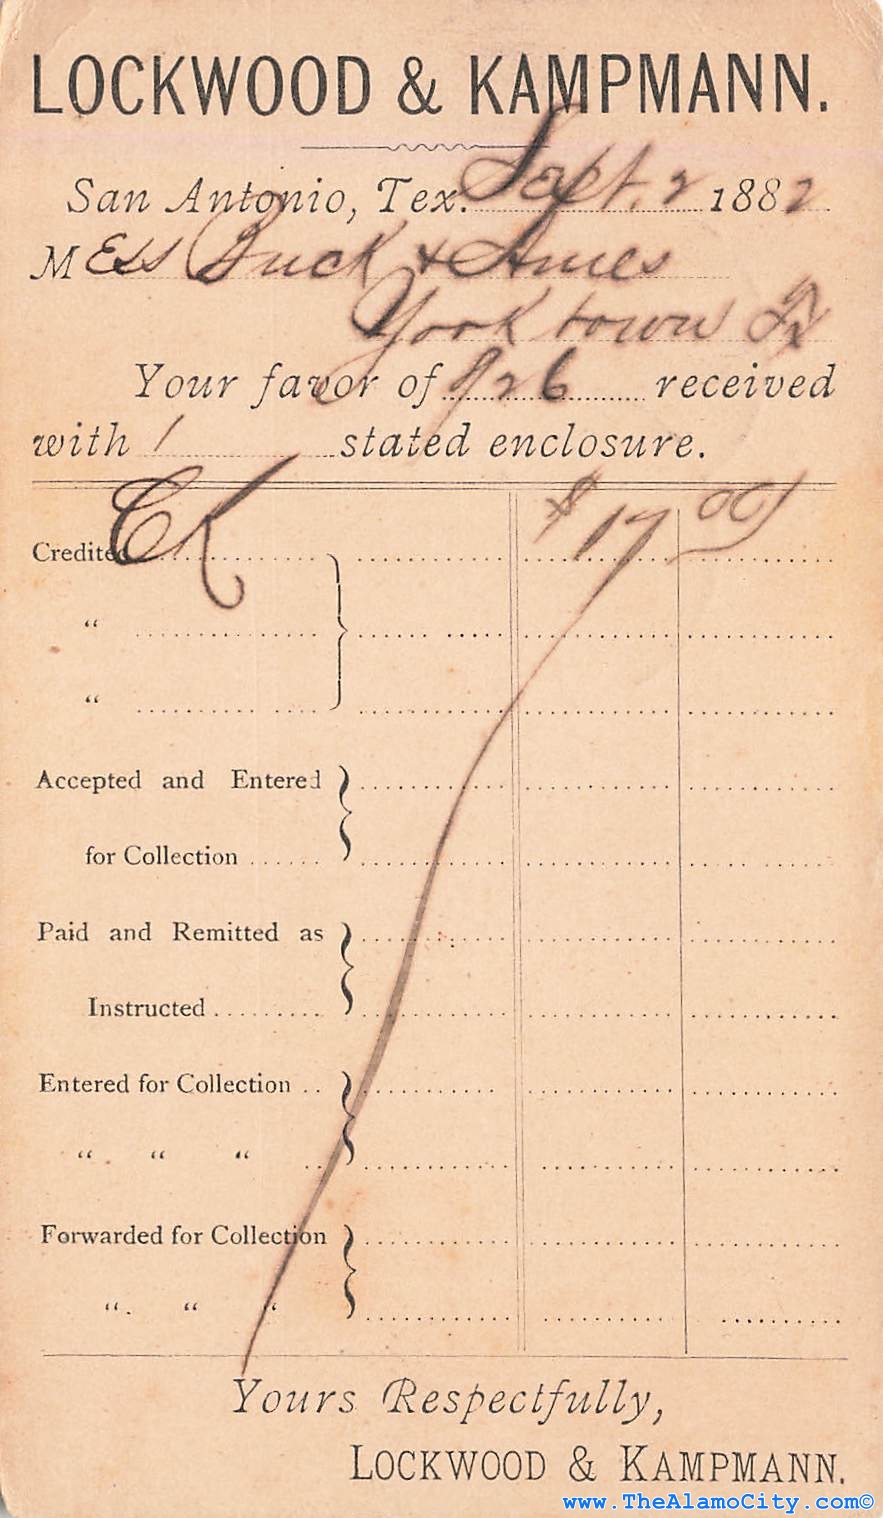 LOCKWOOD & KAMPMANN.
San Antonio, Tex. Sept. 2 1882
Mess Buck & Ames
Yorktown Tx
Your favor of 26 received
with 1 stated enclosure.
Credited CK $17 00
“
“
Accepted and Entered
for Collection
Paid and Remitted as
Instructed
Entered for Collection
“ “ “
Forwarded for Collection
“ “ “
Yours Respectfully,
LOCKWOOD & KAMPMANN.
www.TheAlamoCity.com©